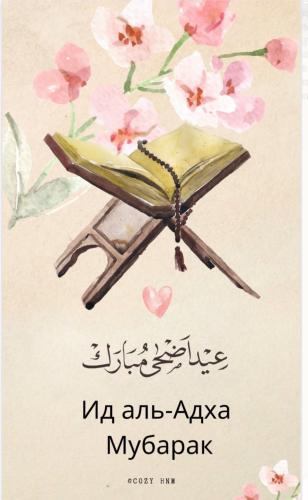 عيد اضحى مبارك
Ид аль-Адха
Мубарак
©COZY HNM